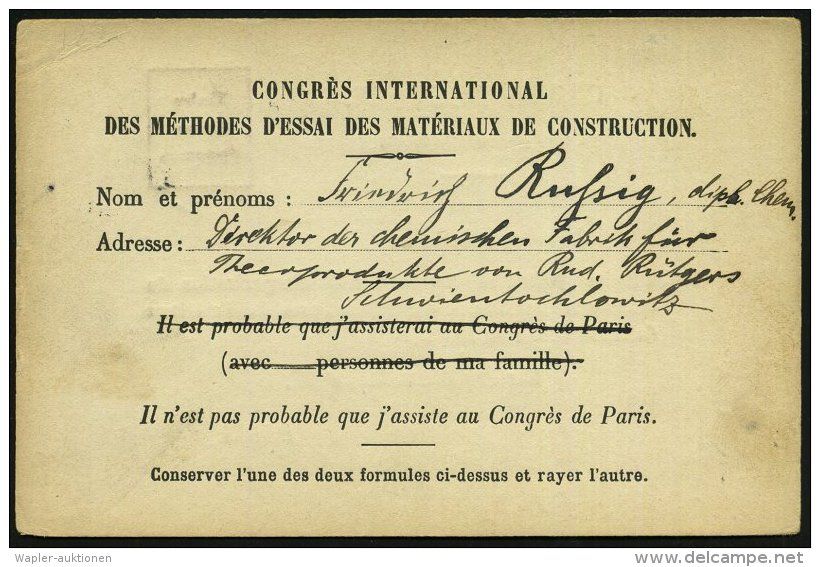 CONGRÈS INTERNATIONAL
DES MÉTHODES D'ESSAI DES MATÉRIAUX DE CONSTRUCTION.
Nom et prénoms : Friedrich Russig, dipl. Chem.
Adresse : Direktor der chemischen Fabrik für
Theerprodukte von Rud. Rütgers
Schwientochlowitz
Il est probable que j'assisterai au Congrès de Paris
(avec personnes de ma famille).
Il n'est pas probable que j'assiste au Congrès de Paris.
Conserver l'une des deux formules ci-dessus et rayer l'autre.
Wapler-auktionen
www.delcampe.net